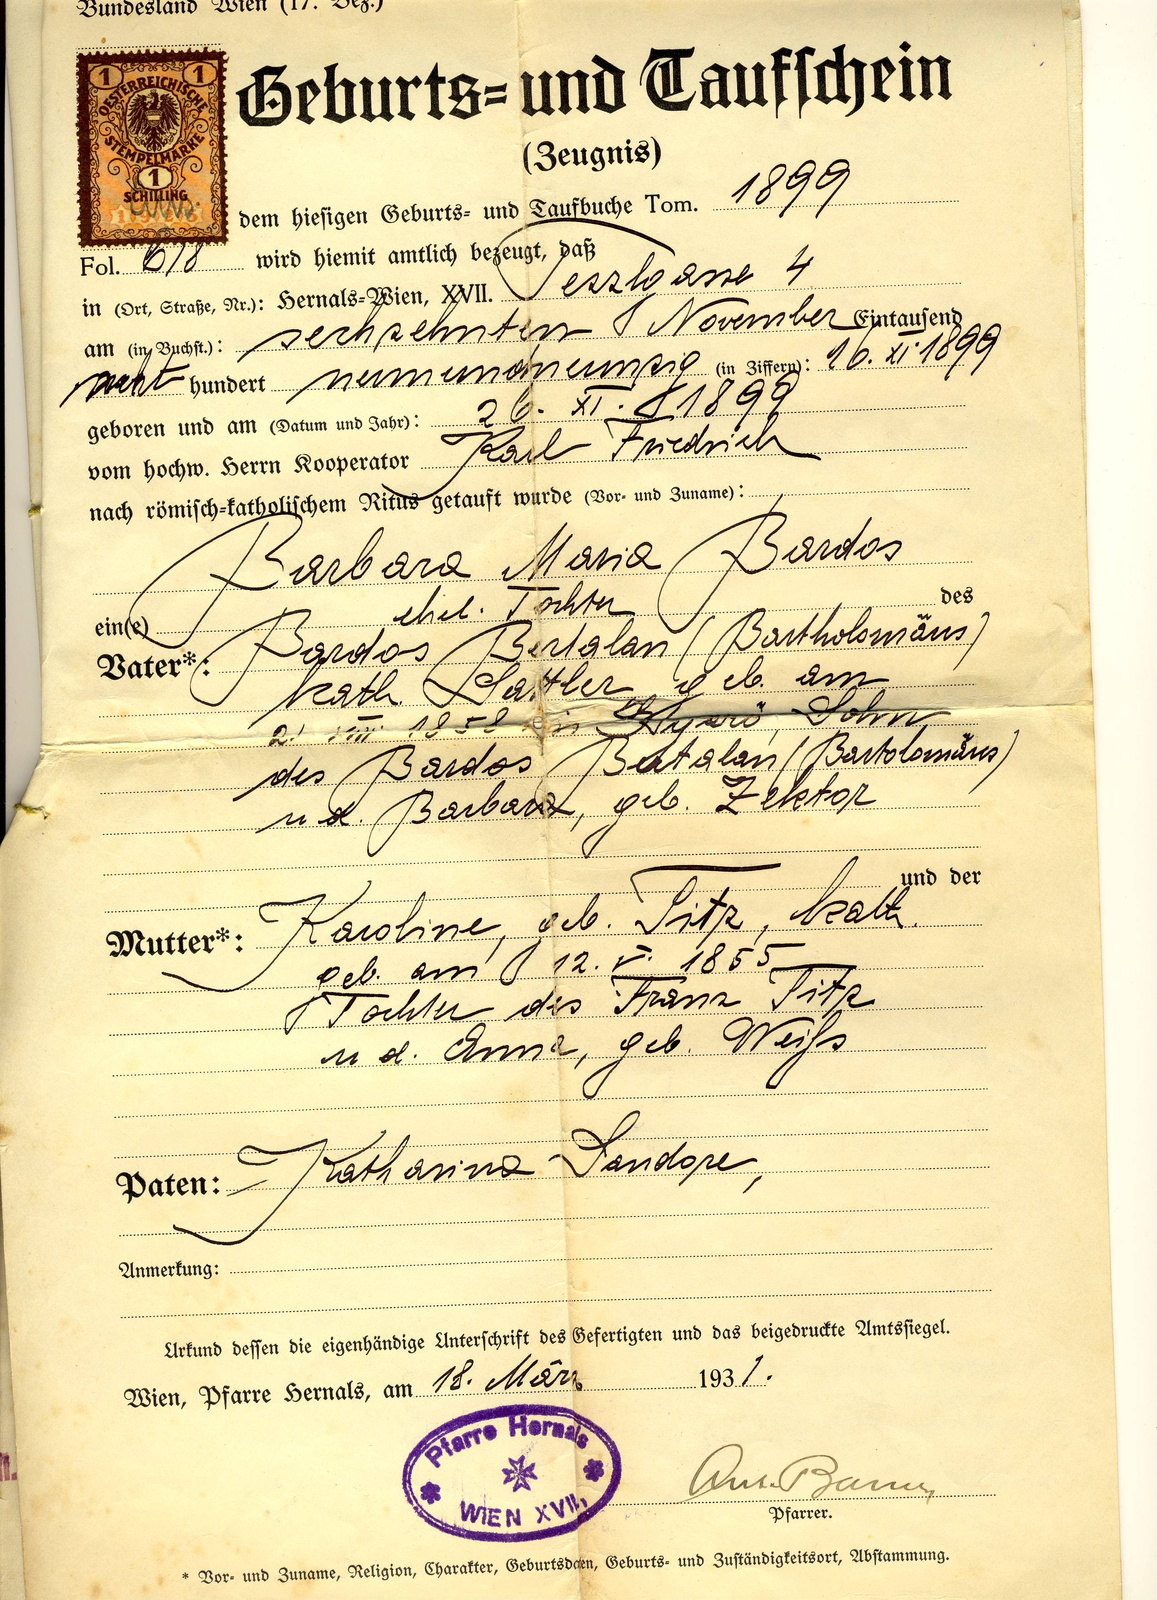 Bundesland Wien (17. Bez.)
1 1
OESTERREICHISCHE
STEMPELMARKE
1
SCHILLING
Geburts- und Taufschein
(Zeugnis)
dem hiesigen Geburts- und Taufbuche Tom. 1899
Fol. 618 wird hiemit amtlich bezeugt, daß
in (Ort, Straße, Nr.): Hernals-Wien, XVII. 4
am (in Buchst.): sechzehnten November Eintausend
acht hundert neunundneunzig (in Ziffern): 16. XI 1899
geboren und am (Datum und Jahr): 26. XI. 1899
vom hochw. Herrn Kooperator Karl Friedrich
nach römisch-katholischem Ritus getauft wurde (Vor- und Zuname):
Barbara Maria Bardos
ein(e) ehel. Tochter des
Vater*: Bardos Bertalan (Bartholomäus)
kath Sattler geb. am
1858 in Sohn
des Bardos Bertalan (Bartolomäus)
u d. Barbara, geb. Zektor
und der
Mutter*: Karoline, geb. Titz, kath.
geb. am 12. V. 1855
Tochter des Franz Titz
u d. Anna, geb. Weiß
Paten: Katharina Sandore,
Anmerkung:
Urkund dessen die eigenhändige Unterschrift des Gefertigten und das beigedruckte Amtssiegel.
Wien, Pfarre Hernals, am 18. März 1931.
Pfarre Hernals
WIEN XVII.
Pfarrer.
* Vor- und Zuname, Religion, Charakter, Geburtsdaten, Geburts- und Zuständigkeitsort, Abstammung.